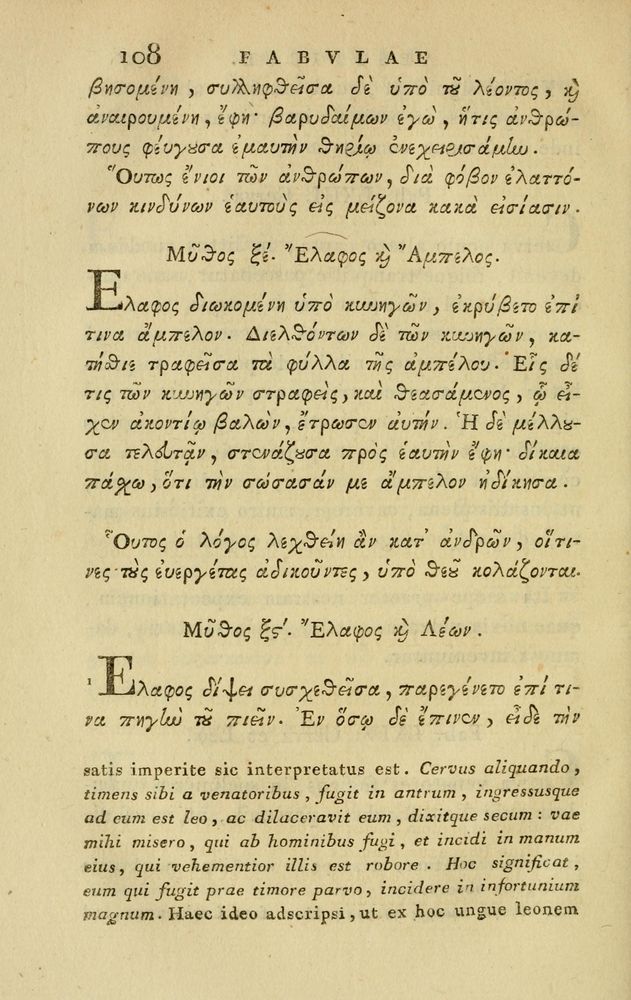 108 FABVLAE
βησομένη, συλληφθεῖσα δὲ ὑπὸ τοῦ λέοντος, καὶ
ἀναιρουμένη, ἔφη· βαρυδαίμων ἐγὼ, ἥτις ἀνθρώ-
πους φεύγουσα ἐμαυτὴν θηρίῳ ἐνεχειρισάμην.
Οὕτως ἔνιοι τῶν ἀνθρώπων, διὰ φόβον ἐλαττό-
νων κινδύνων ἑαυτοὺς εἰς μείζονα κακὰ εἰσίασιν.
Μῦθος ξέ. Ἔλαφος καὶ Ἄμπελος.
Ἔλαφος διωκομένη ὑπὸ κυνηγῶν, ἐκρύβετο ἐπί
τινα ἄμπελον. Διελθόντων δὲ τῶν κυνηγῶν, κα-
τήθιε τραφεῖσα τὰ φύλλα τῆς ἀμπέλου. Εἷς δέ
τις τῶν κυνηγῶν στραφεὶς, καὶ θεασάμενος, ᾧ εἶ-
χεν ἀκοντίῳ βαλὼν, ἔτρωσεν αὐτήν. Ἡ δὲ μέλλου-
σα τελευτᾷν, στενάζουσα πρὸς ἑαυτὴν ἔφη· δίκαια
πάσχω, ὅτι τὴν σώσασάν με ἄμπελον ἠδίκησα.
Οὗτος ὁ λόγος λεχθείη ἂν κατ' ἀνδρῶν, οἵτι-
νες τοὺς εὐεργέτας ἀδικοῦντες, ὑπὸ θεοῦ κολάζονται.
Μῦθος ξϛ'. Ἔλαφος καὶ Λέων.
¹ Ἔλαφος δίψει συσχεθεῖσα, παρεγένετο ἐπί τι-
να πηγὴν τοῦ πιεῖν. Ἐν ὅσῳ δὲ ἔπινεν, εἶδε τὴν
satis imperite sic interpretatus est. Cervus aliquando,
timens sibi a venatoribus, fugit in antrum, ingressusque
ad eum est leo, ac dilaceravit eum, dixitque secum: vae
mihi misero, qui ab hominibus fugi, et incidi in manum
eius, qui vehementior illis est robore. Hoc significat,
eum qui fugit prae timore parvo, incidere in infortunium
magnum. Haec ideo adscripsi, ut ex hoc ungue leonem